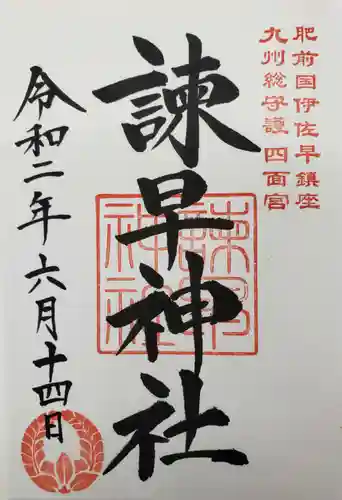 肥前国伊佐早鎮座
九州総守護 四面宮
諫早神社
諫早神社
令和二年六月十四日